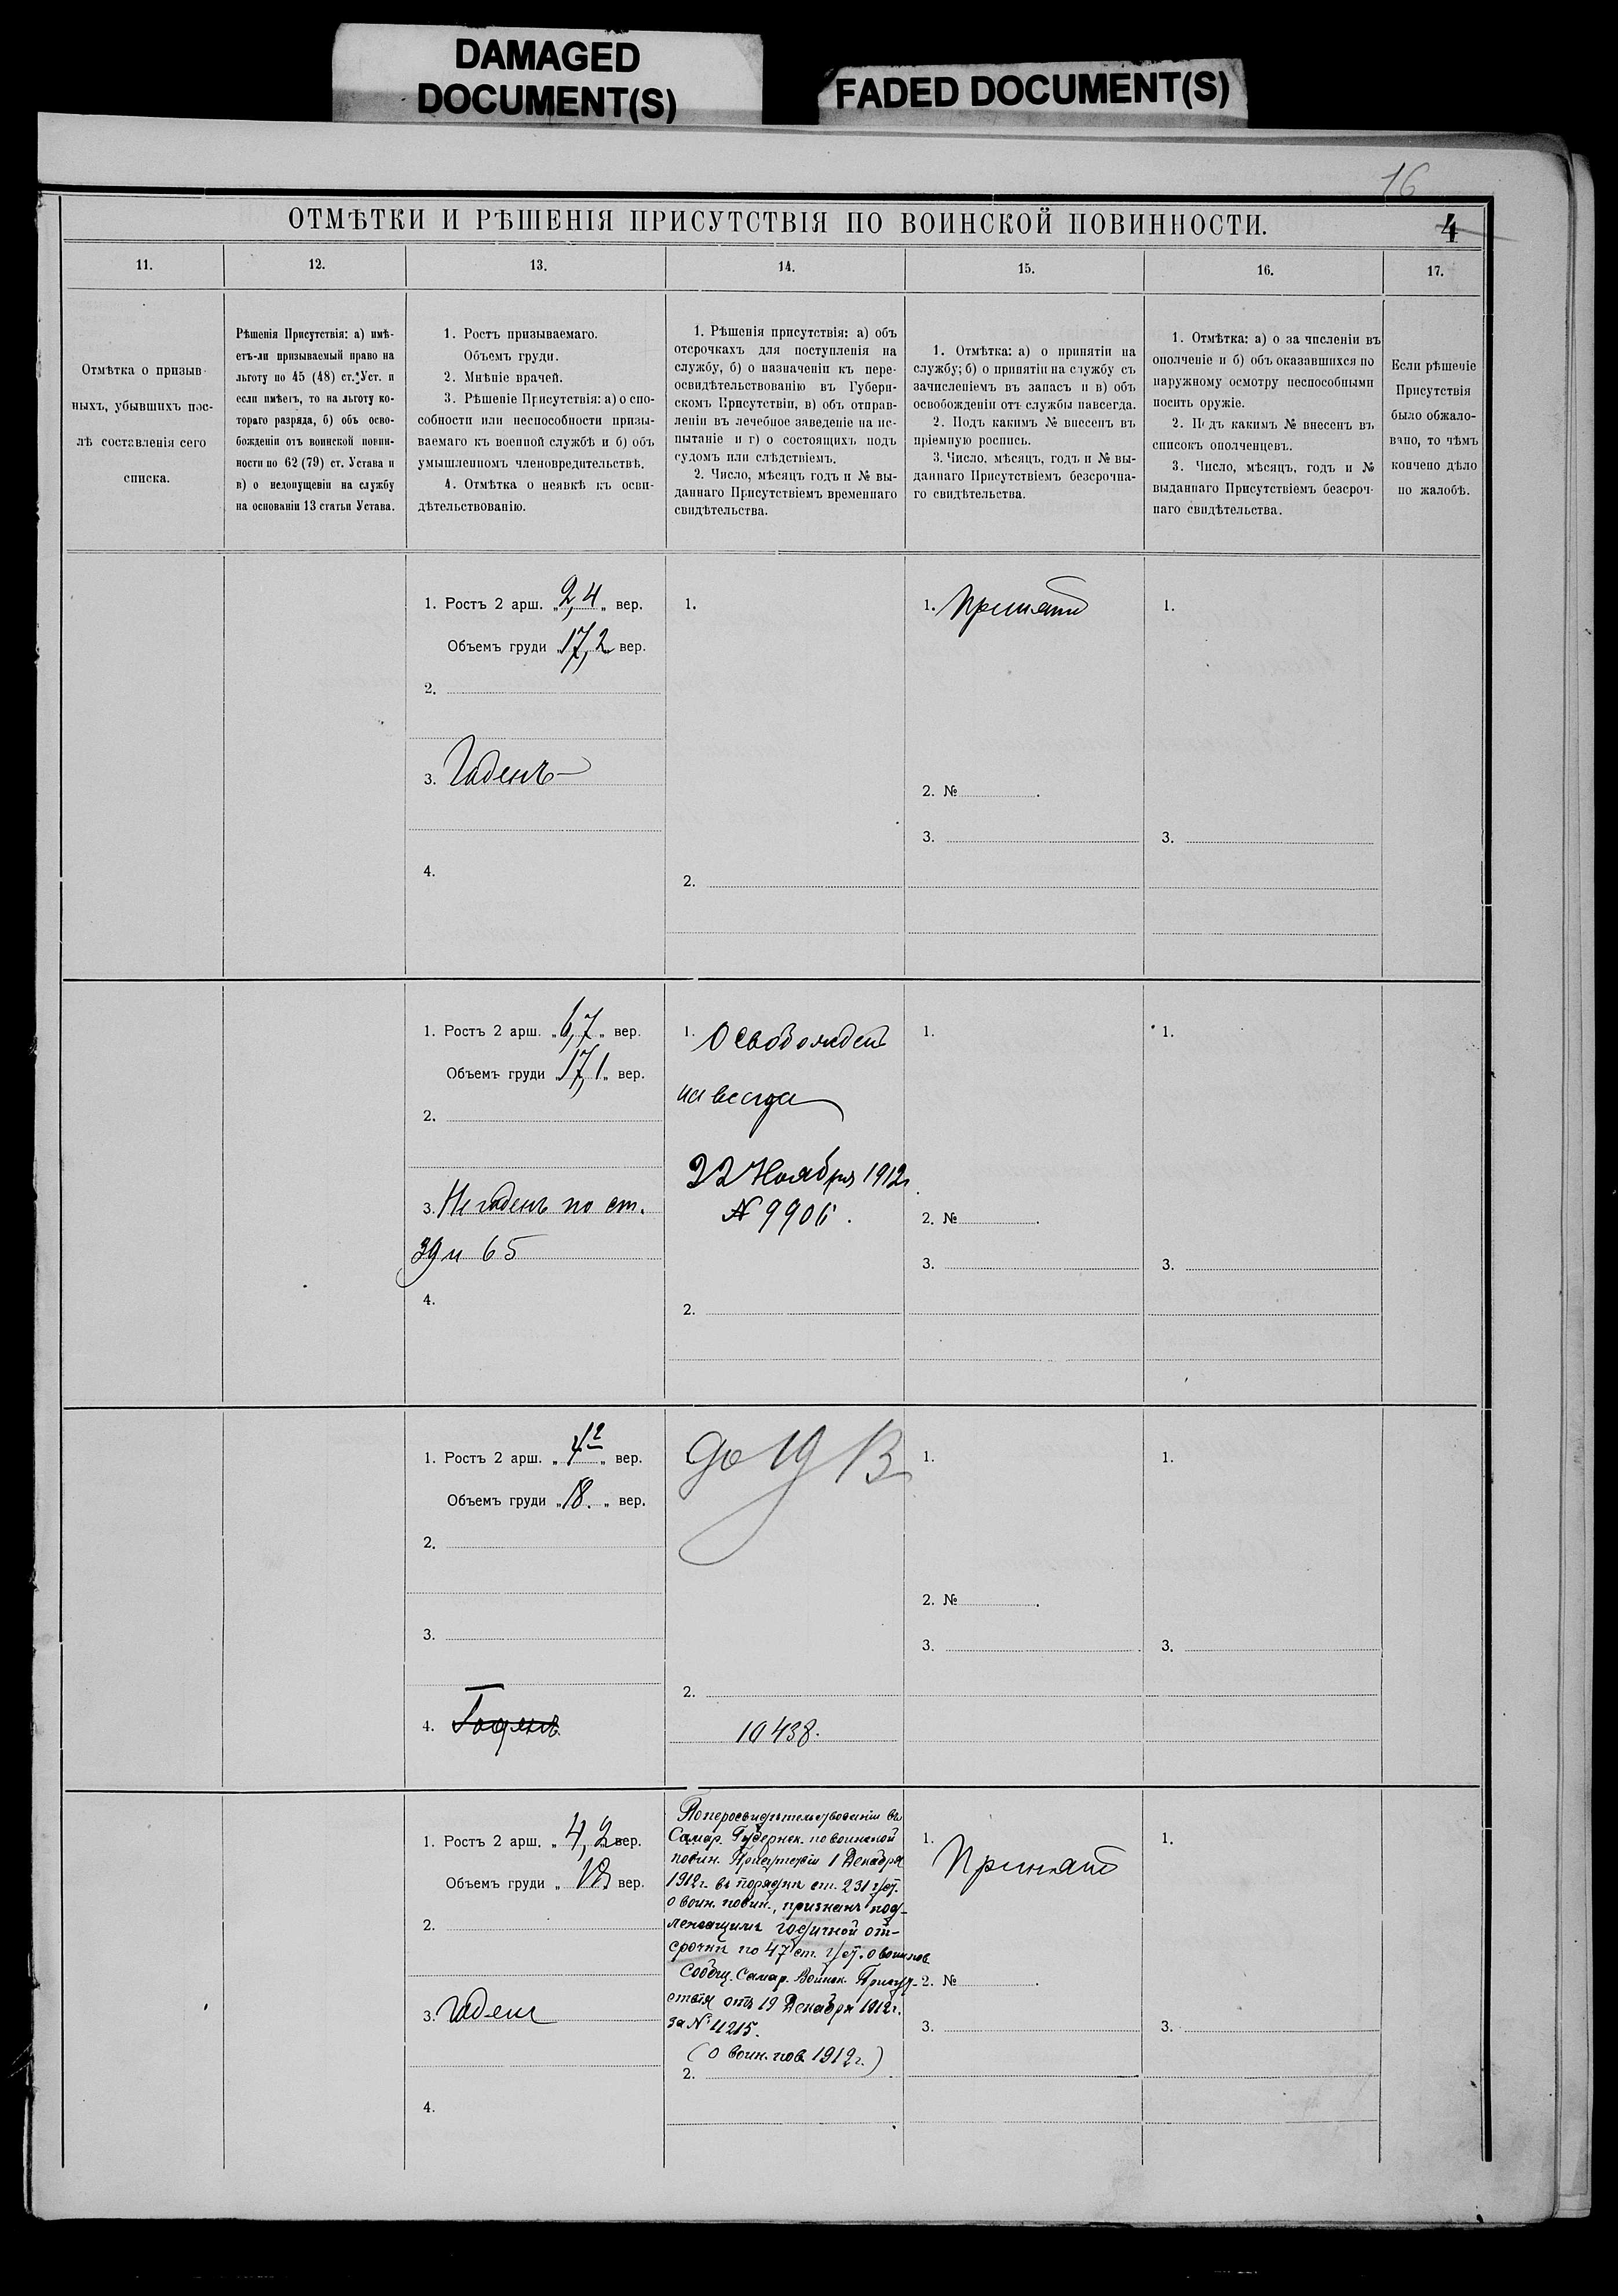 DAMAGED
DOCUMENT(S)
FADED DOCUMENT(S)
16
ОТМѢТКИ И РѢШЕНІЯ ПРИСУТСТВІЯ ПО ВОИНСКОЙ ПОВИННОСТИ.
4
11.
12.
13.
14.
15.
16.
17.
Отмѣтка о призыв-
ныхъ, убывшихъ пос-
лѣ составленія сего
списка.
Рѣшенія Присутствія: а) имѣ-
етъ-ли призываемый право на
льготу по 45 (48) ст. Уст. и
если имѣетъ, то на льготу ко-
тораго разряда, б) объ осво-
божденіи отъ воинской повин-
ности по 62 (79) ст. Устава и
в) о недопущеніи на службу
на основаніи 13 статьи Устава.
1. Ростъ призываемаго.
Объемъ груди.
2. Мнѣніе врачей.
3. Рѣшеніе Присутствія: а) о спо-
собности или неспособности призы-
ваемаго къ военной службѣ и б) объ
умышленномъ членовредительствѣ.
4. Отмѣтка о неявкѣ къ осви-
дѣтельствованію.
1. Рѣшенія присутствія: а) объ
отсрочкахъ для поступленія на
службу, б) о назначеніи къ пере-
освидѣтельствованію въ Губерн-
скомъ Присутствіи, в) объ отправ-
леніи въ лечебное заведеніе на ис-
пытаніе и г) о состоящихъ подъ
судомъ или слѣдствіемъ.
2. Число, мѣсяцъ годъ и № вы-
даннаго Присутствіемъ временнаго
свидѣтельства.
1. Отмѣтка: а) о принятіи на
службу; б) о принятіи на службу съ
зачисленіемъ въ запасъ и в) объ
освобожденіи отъ службы навсегда.
2. Подъ какимъ № внесенъ въ
пріемную роспись.
3. Число, мѣсяцъ, годъ и № вы-
даннаго Присутствіемъ безсрочна-
го свидѣтельства.
1. Отмѣтка: а) о за численіи въ
ополченіе и б) объ оказавшихся по
наружному осмотру неспособными
носить оружіе.
2. Подъ какимъ № внесенъ въ
списокъ ополченцевъ.
3. Число, мѣсяцъ, годъ и №
выданнаго Присутствіемъ безсроч-
наго свидѣтельства.
Если рѣшеніе
Присутствія
было обжало-
вано, то чѣмъ
кончено дѣло
по жалобѣ.
1. Ростъ 2 арш. „2,4„ вер.
Объемъ груди „17,2 вер.
2.
3. Годенъ
4.
1.
2.
1. Принятъ
2. №
3.
1.
3.
1. Ростъ 2 арш. „6,7„ вер.
Объемъ груди „17,1„ вер.
2.
3. Не годенъ по ст.
39 и 65
4.
1. Освобожденъ
навсегда
22 Ноября 1912г.
№ 9906.
2.
1.
2. №
3.
1.
3.
1. Ростъ 2 арш. „4 2„ вер.
Объемъ груди „18.„ вер.
2.
3.
4. Годенъ
до 1913
2.
10438.
1.
2. №
3.
1.
3.
1. Ростъ 2 арш. „4,2 вер.
Объемъ груди „18 вер.
2.
3. Годенъ
4.
По переосвидѣтельствованіи въ
Самар. Губернск. по воинской
повин. Присутствіи 1 Декабря
1912г. въ порядкѣ ст. 231 Уст.
о воин. повин., признанъ под-
лежащимъ годичной от-
срочкѣ по 47 ст. Уст. о воин. пов.
Сообщ. Самар. Воинск. Присут-
ствія отъ 19 Декабря 1912г.
за № 11215.
(о воин. пов. 1912г.)
2.
1. Принятъ
2. №
3.
1.
3.